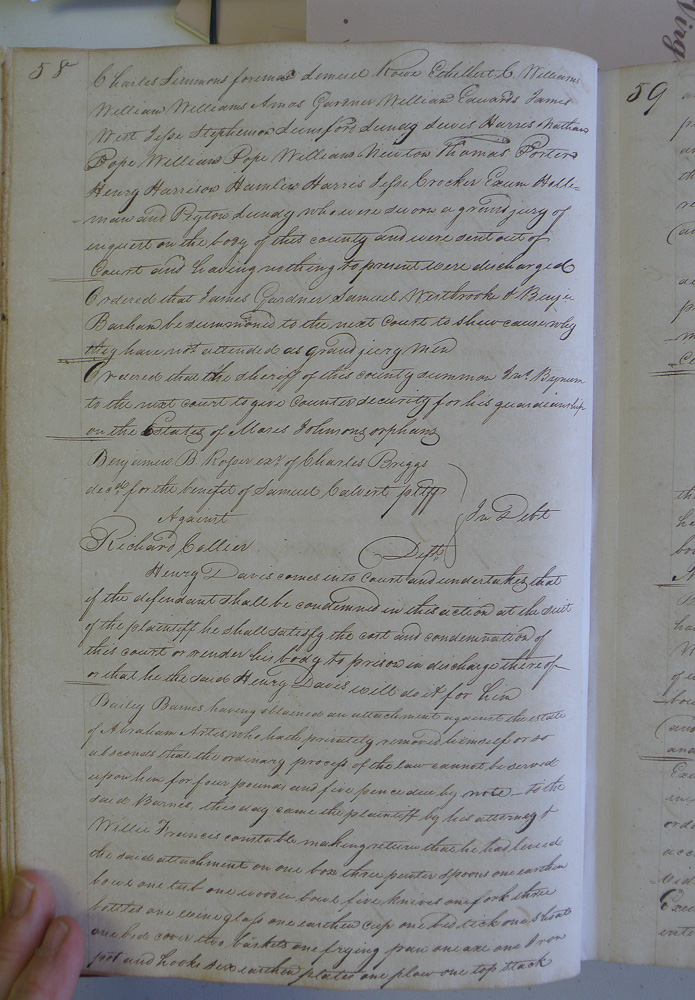 58
Charles Simmons foreman Lemuel Rowe Echelbert C. Williams
William Williams Amos Gardner William Edwards James
West Jesse Stephenson Lunsford Lundy Lewis Harris Nathan
Pope William Pope William Newton Thomas Porter
Henry Harrison Hamlin Harris Jesse Crocker Exum Holle=
man and Peyton Lundy who were sworn a grand jury of
inquest on the body of this county and were sent out of
Court and having nothing to present were discharged
Ordered that James Gardner Samuel Westbrooke & Benja
Barham be summoned to the next Court to shew cause why
they have not attended as grand jury men
Ordered that the sheriff of this county summon Jno. Bynum
to the next court to give Counter security for his guardianship
on the Estates of Moses Johnsons orphans
Benjamin B Roper exr. of Charles Briggs
decd. for the benefit of Samuel Calvert pltff
Against
In Debt
Richard Collier Deft.
Henry Davis comes into Court and undertakes that
if the defendant shall be condemned in this action at the suit
of the plaintiff he shall satisfy the cost and condemnation of
this court or render his body to prison in discharge thereof
or that he the said Henry Davis will do it for him
Bailey Barnes having obtained an attachment against the estate
of Abraham Artes who hath privately removed himself or so
absconds that the ordinary process of the law cannot be served
upon him for four pounds and five pence due by note - to the
said Barnes, this day came the plaintiff by his attorney &
Willie Francis constable making return that he had levied
the said attachment on one box three pewter spoons one earthen
bowl one tub one wooden bowl five knives one fork three
bottles one wine glass one earthen cup one bed tick one sheet
one bed cover two baskets one frying pan one axe one Iron
pot and hooks six earthen plates one plow one top stack
59